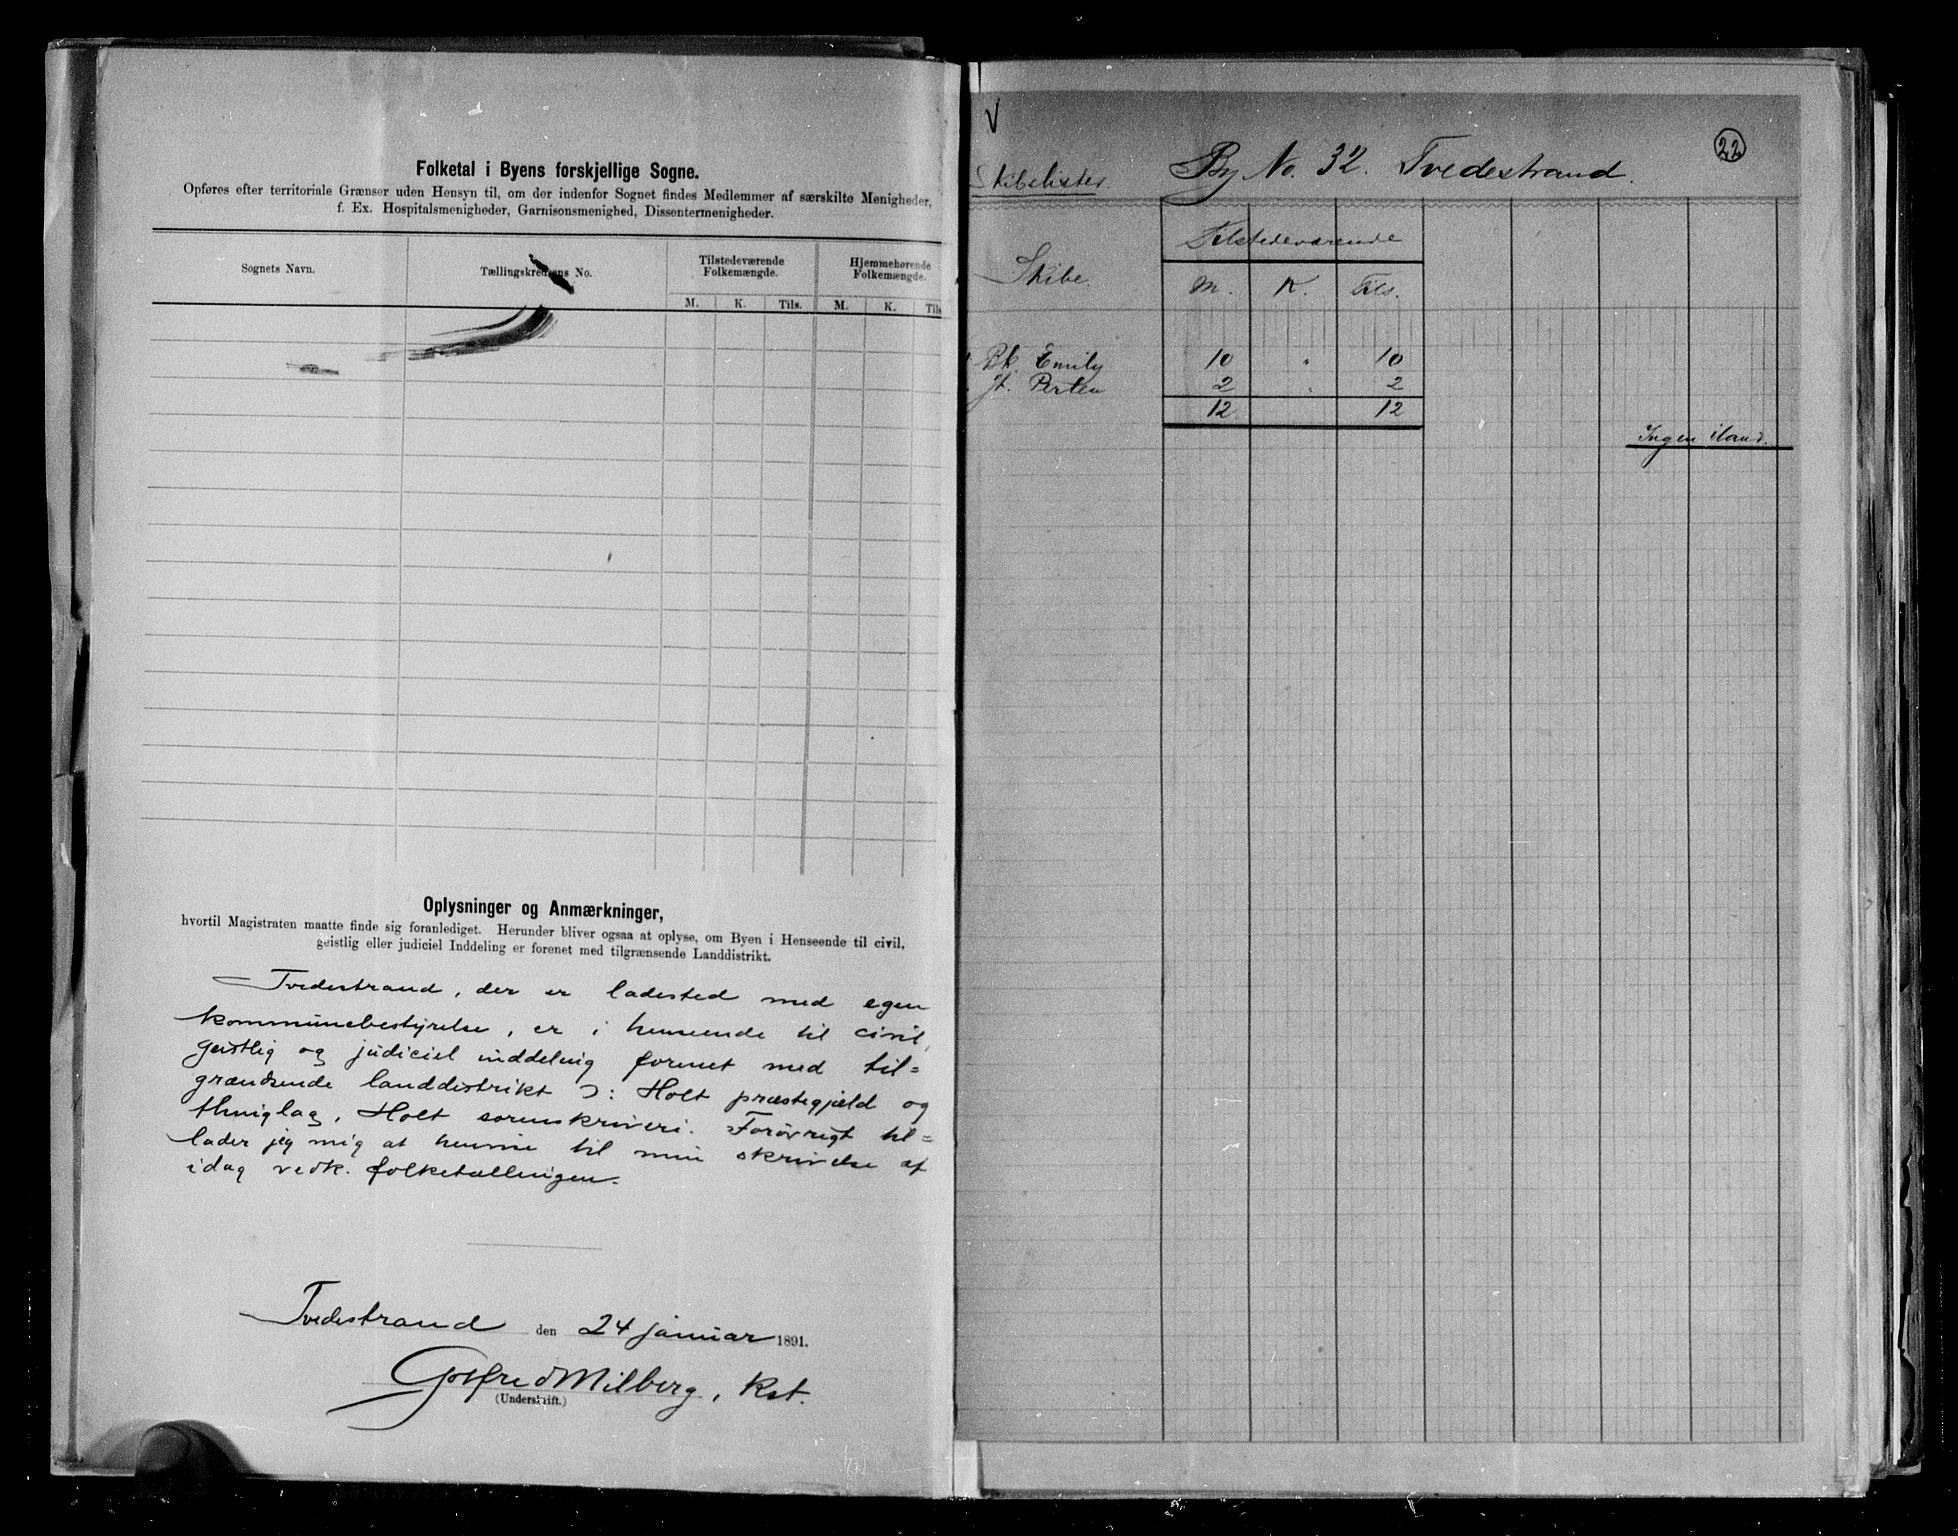 Folketal i Byens forskjellige Sogne.
Opføres efter territoriale Grænser uden Hensyn til, om der indenfor Sognet findes Medlemmer af særskilte Menigheder,
f. Ex. Hospitalsmenigheder, Garnisonsmenighed, Dissentermenigheder.
Sognets Navn. Tællingskredsens No. Tilstedeværende Folkemængde. Hjemmehørende Folkemængde.
M. K. Tils. M. K. Tils
Oplysninger og Anmærkninger,
hvortil Magistraten maatte finde sig foranlediget. Herunder bliver ogsaa at oplyse, om Byen i Henseende til civil,
geistlig eller judiciel Inddeling er forenet med tilgrænsende Landdistrikt.
Tvedestrand, der er ladested med egen
kommunebestyrelse, er i henseende til civil,
geistlig og judiciel inddeling forenet med til=
grændsende landdistrikt ɔ: Holt præstegjæld og
thinglag, Holt sorenskriveri. Forøvrigt til=
lader jeg mig at henvise til min skrivelse af
idag vedk. folketællingen.
Tvedestrand den 24 januar 1891.
Gotfred Milberg, Kst.
(Underskrift.)
V
22
Skibslister By No. 32. Tvedestrand.
Tilstedeværende
Skibe. M. K. Tils.
Bk. Emily 10 " 10
Jt. Perlen 2 " 2
12 12
Ingen iland.